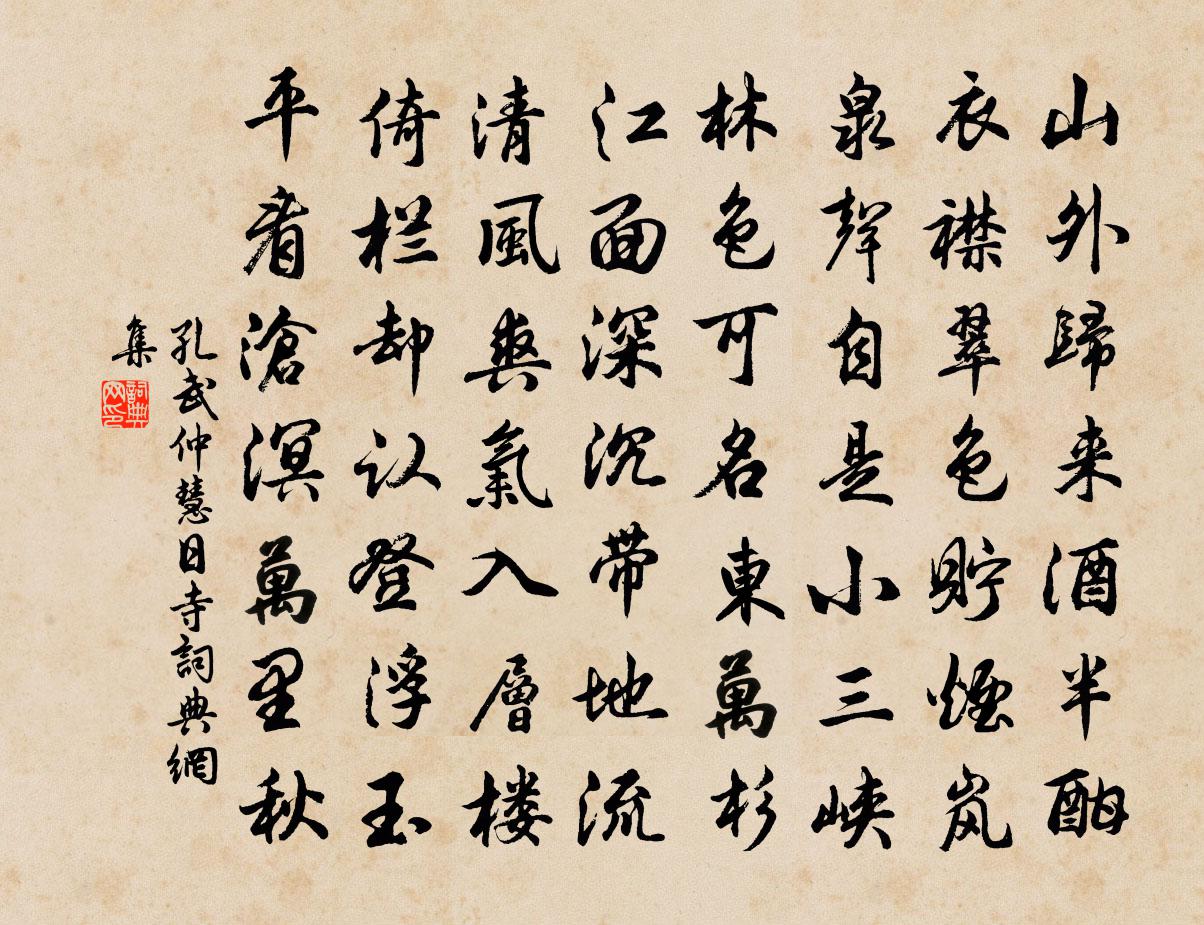 山外歸来酒半酣
衣襟翠色貯煙岚
泉聲自是小三峡
林色可名東萬杉
江面深沉带地流
清風爽氣入層楼
倚栏却认登浮玉
平看滄溟萬里秋
孔武仲慧日寺詞典網
集
詞典网印